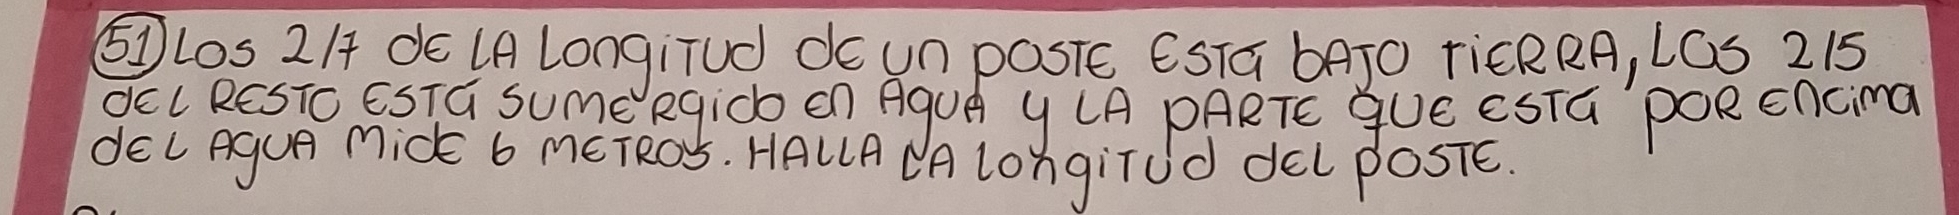 51) Los 2/7 de la longitud de un poste está bajo tierra, los 2/5
del resto está sumergido en agua y la parte que está por encima
del agua mide 6 metros. Halla la longitud del poste.